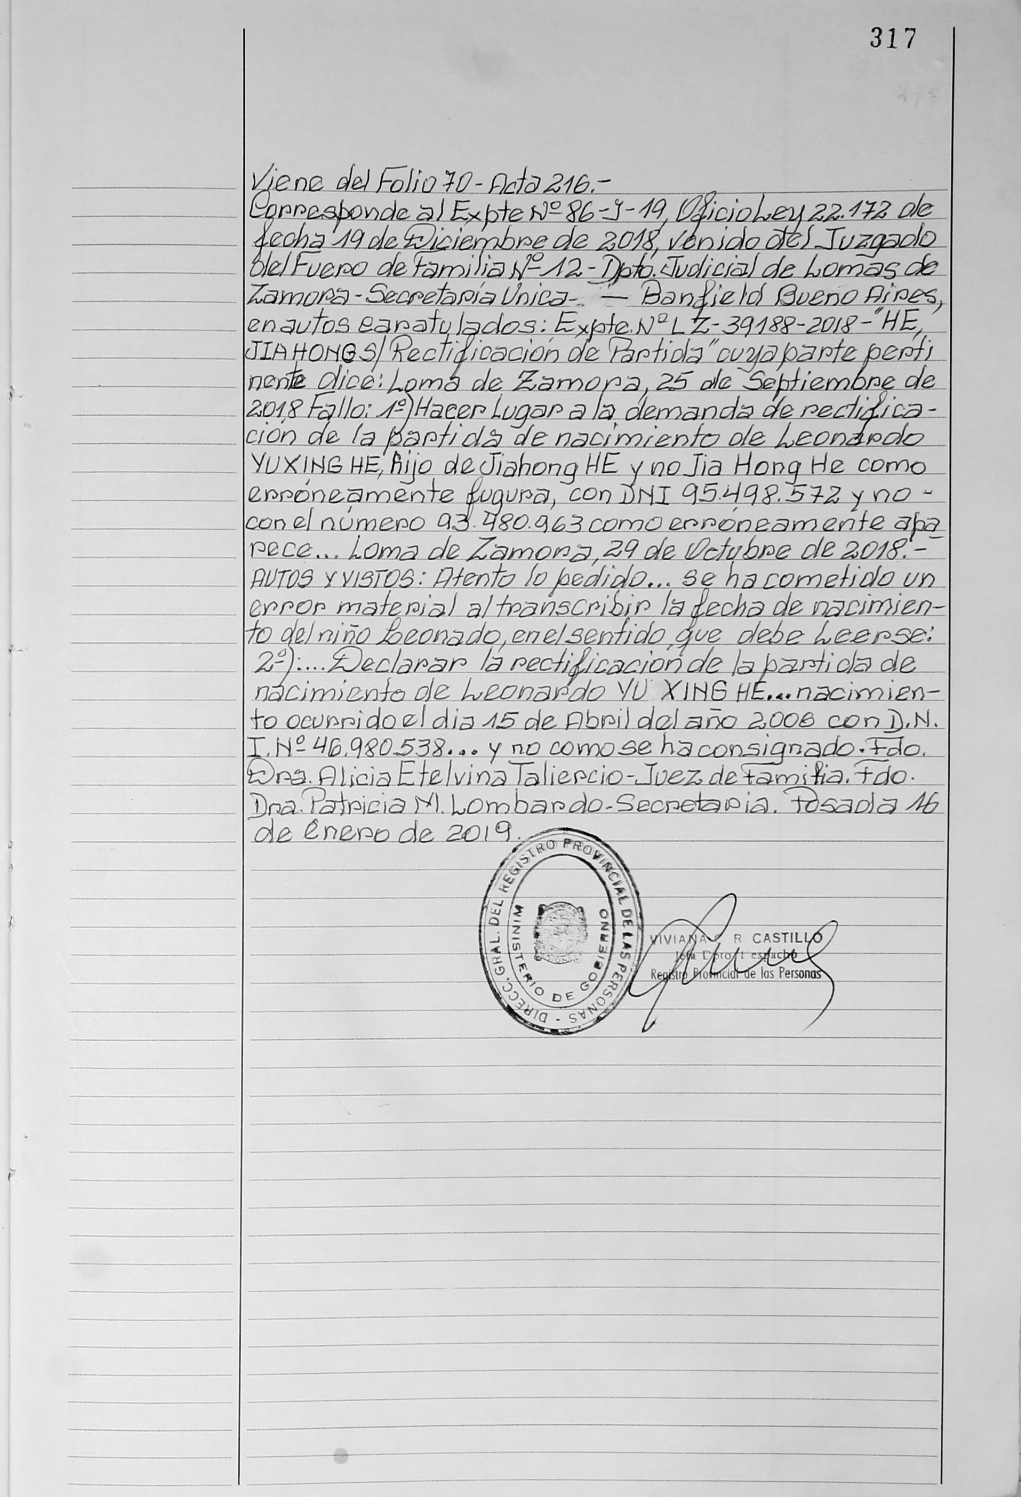 317
Viene del Folio 70 - Acta 216.-
Corresponde al Expte Nº 86-J-19, Oficio Ley 22.172 de
fecha 19 de Diciembre de 2018, venido del Juzgado
del Fuero de Familia Nº 12 - Dpto. Judicial de Lomas de
Zamora - Secretaría Unica- — Banfield Bueno Aires,
en autos caratulados: Expte. Nº LZ-39188-2018-"HE,
JIAHONG S/ Rectificación de Partida" cuya parte perti
nente dice: Loma de Zamora, 25 de Septiembre de
2018 Fallo: 1º) Hacer Lugar a la demanda de rectifica-
ción de la partida de nacimiento de Leonardo
YUXING HE, Hijo de Jiahong HE y no Jia Hong He como
erróneamente fugura, con DNI 95.498.572 y no -
con el número 93.480.963 como erróneamente apa
rece... Loma de Zamora, 29 de Octubre de 2018.-
AUTOS Y VISTOS: Atento lo pedido... se ha cometido un
error material al transcribir la fecha de nacimien-
to del niño Leonado, en el sentido que debe Leerse:
2º):... Declarar la rectificación de la partida de
nacimiento de Leonardo YU XING HE... nacimien-
to ocurrido el dia 15 de Abril del año 2006 con D.N.
I. Nº 46.980.538... y no como se ha consignado. Fdo.
Dra. Alicia Etelvina Taliercio - Juez de Familia. Fdo.
Dra. Patricia M. Lombardo - Secretaria. Posada 16
de Enero de 2019.
DIRECC. GRAL. DEL REGISTRO PROVINCIAL DE LAS PERSONAS -
MINISTERIO DE GOBIERNO
VIVIANA R CASTILLO
Jefa Dpto. Despacho
Registro Provincial de las Personas